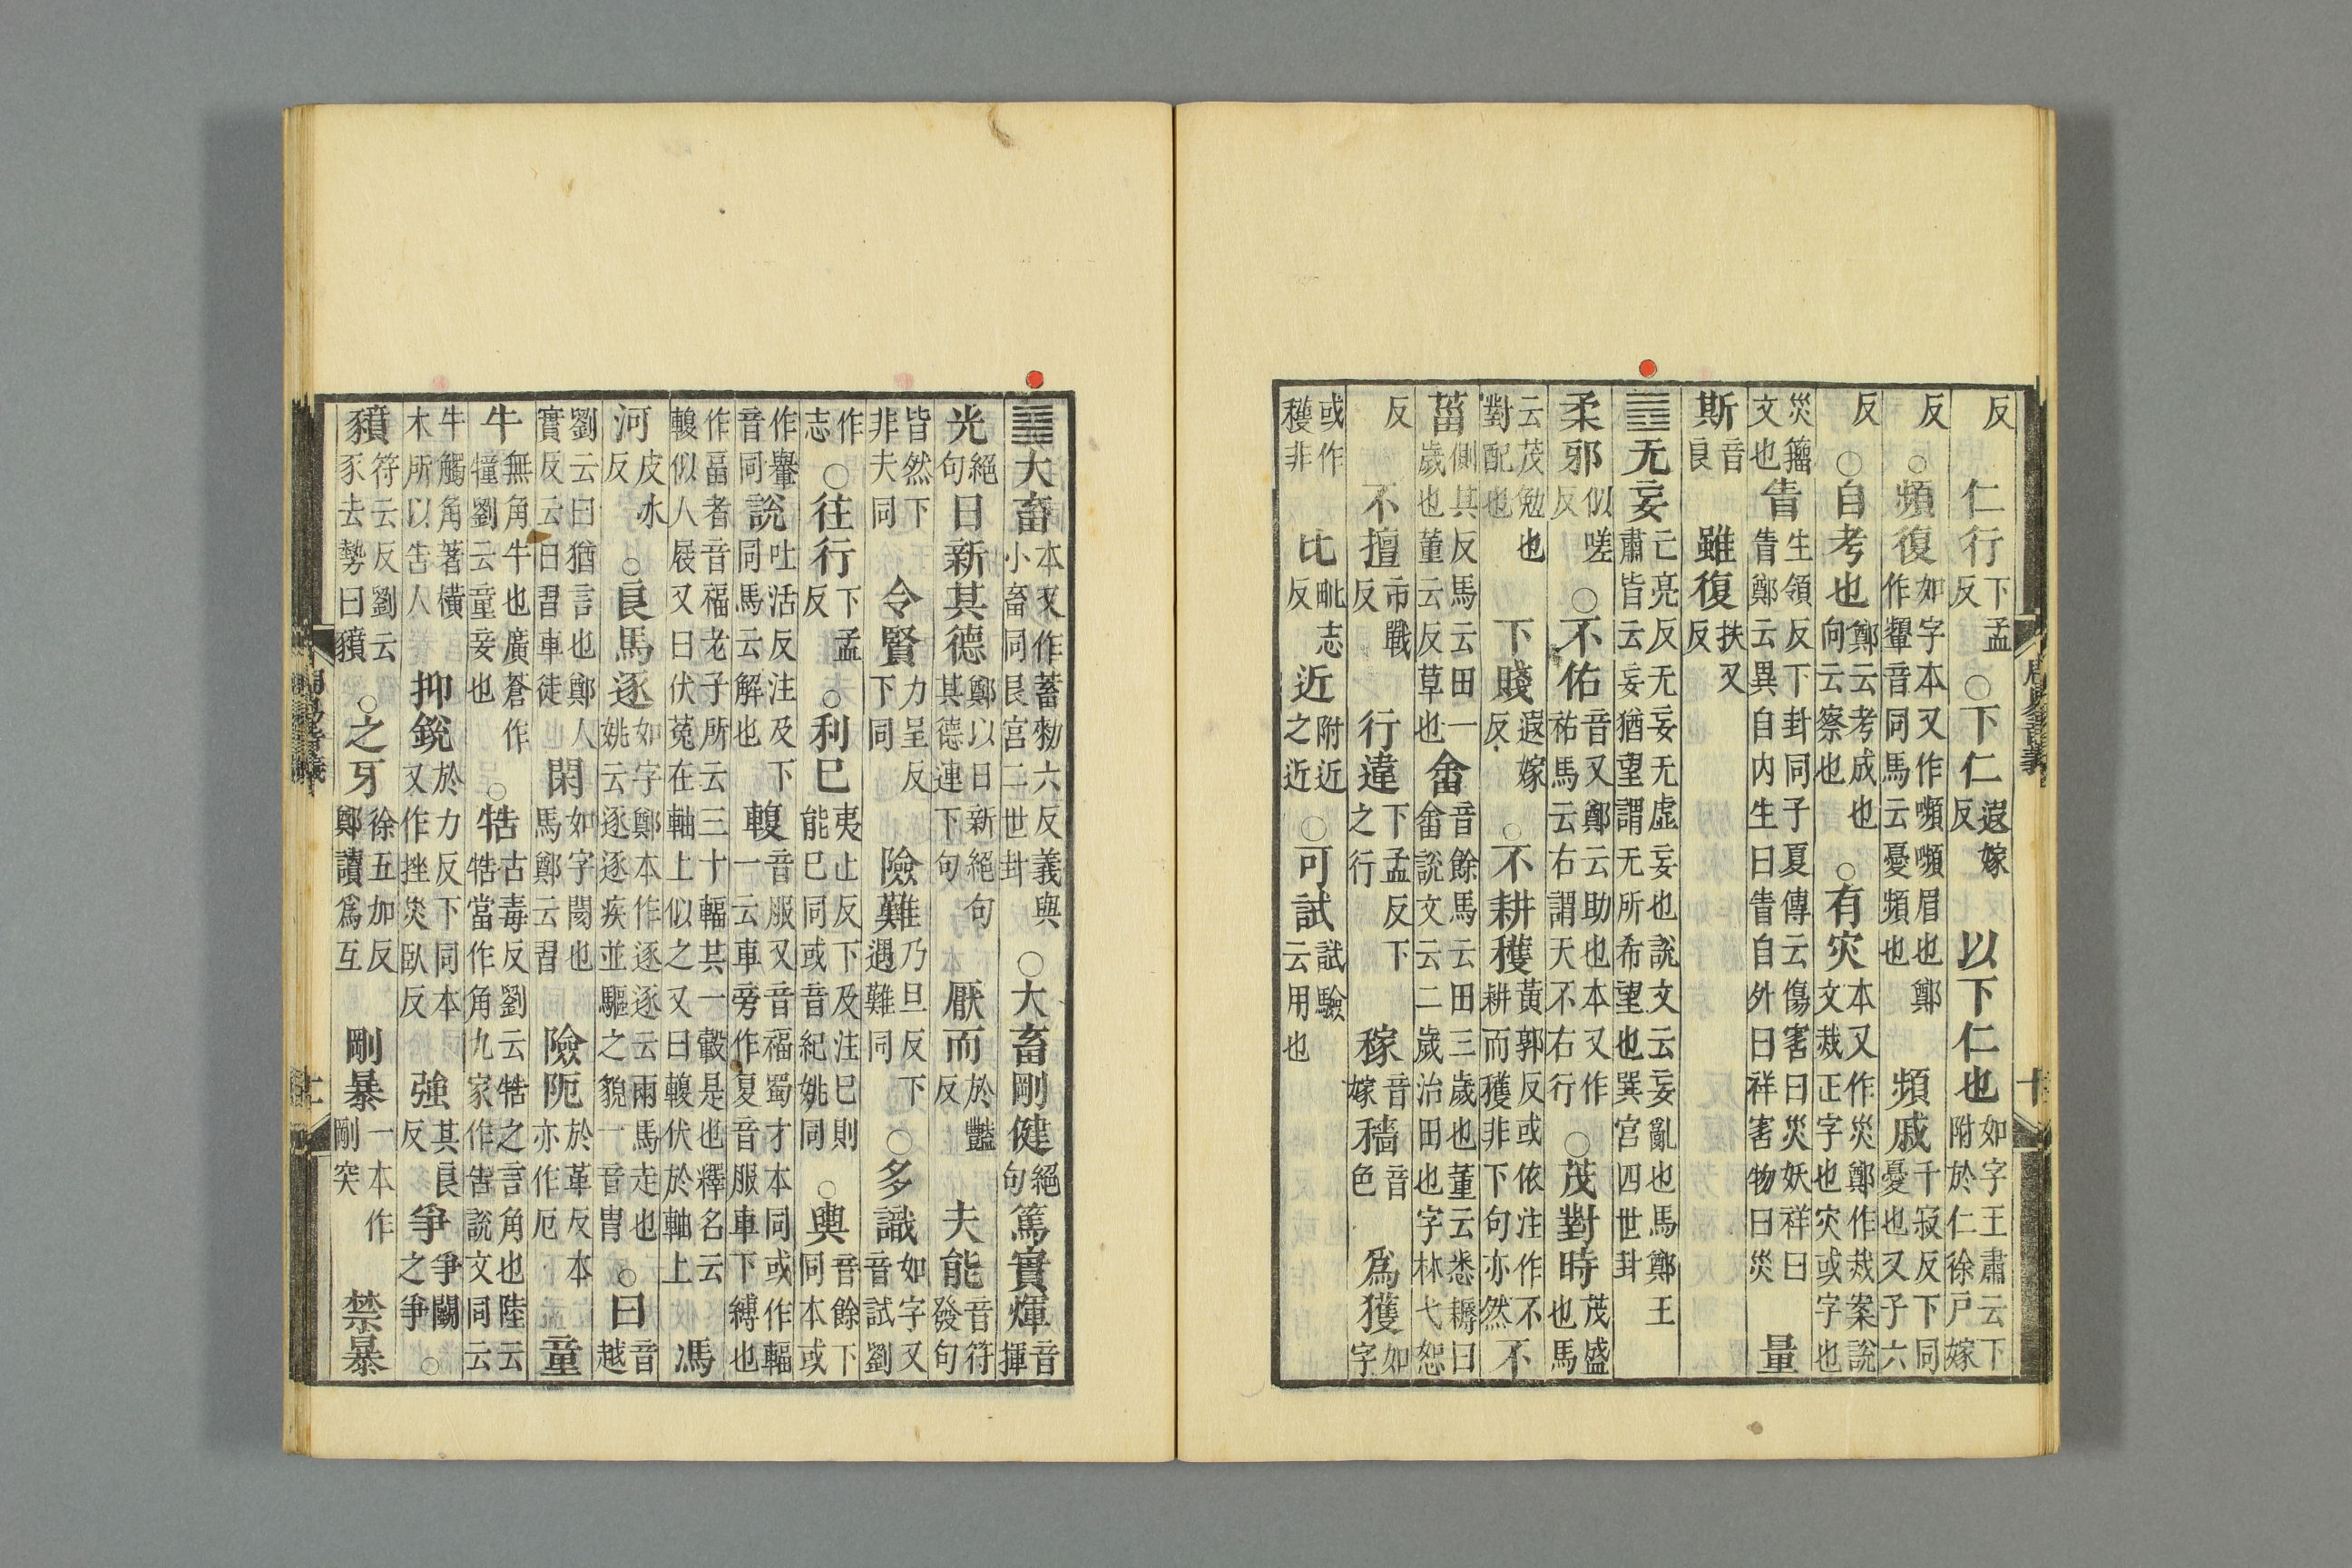 反　仁行下孟反○下仁遐嫁反　以下仁也如字王肅云下附於仁徐戶嫁
反○頻復如字本又作嚬嚬眉也鄭作顰音同馬云憂頻也　頻戚千寂反下同憂也又子六
反○自考也鄭云考成也向云察也○有灾本又作災鄭作烖案說文烖正字也灾或字也
災籀文也眚生領反下卦同子夏傳云傷害曰災妖祥曰眚鄭云異自內生曰眚自外曰祥害物曰災　量
斯音良　雖復扶又反
䷘无妄亡亮反无妄无虛妄也說文云妄亂也馬鄭王肅皆云妄猶望謂无所希望也巽宮四世卦
柔邪似嗟反○不佑音又鄭云助也本又作祐馬云右謂天不右行○茂對時茂盛也馬
云茂勉也對配也　下賤遐嫁反○不耕穫黃郭反或依注作不耕而穫非下句亦然　不
菑側其反馬云田一歲也董云反草也畬音餘馬云田三歲也董云悉耨曰畬說文云二歲治田也字林弋恕
反　不擅市戰反　行違下孟反下之行　稼音嫁穡音色　爲獲如字
或作穫非　比毗志反近附近之近○可試試驗云用也
周易音義　十
䷙大畜本又作蓄勑六反義與小畜同艮宮二世卦○大畜剛健絕句篤實煇音揮
光絕句日新其德鄭以日新絕句其德連下句　厭而於豔反　夫能音符發句
皆然下非夫同　令賢力呈反下同　險難乃旦反下遇難同○多識如字又音試劉
作志○往行下孟反○利已夷止反下及注已則能已同或音紀姚同○輿音餘下同本或
作轝音同說吐活反注及下同馬云解也　輹音服又音福蜀才本同或作輻一云車旁作复音服車下縛也
作畐者音福老子所云三十輻其一轂是也釋名云輹似人屐又曰伏菟在軸上似之又曰輹伏於軸上　馮
河皮冰反○良馬逐如字鄭本作逐逐云兩馬走也姚云逐逐疾並驅之貌一音冑○曰音越
劉云曰猶言也鄭人實反云曰習車徒　閑如字閡也馬鄭云習　險阨於革反本亦作厄　童
牛無角牛也廣蒼作犝劉云童妾也○牿古毒反劉云牿之言角也陸云牿當作角九家作告說文同云
牛觸角著橫木所以告人　抑銳於力反下同本又作挫災臥反　強其良反爭爭鬭之爭○
豶符云反劉云豕去勢曰豶○之牙徐五加反鄭讀爲互　剛暴一本作剛突　禁暴